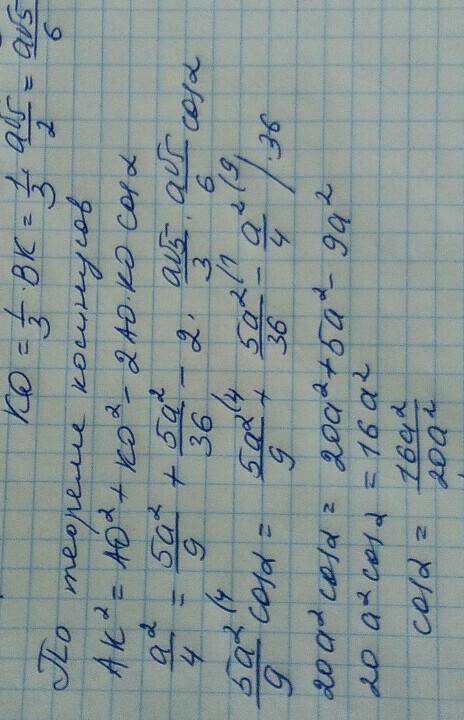 KO = 1/3 · BK = 1/3 · a√5/2 = a√5/6
По теореме косинусов
AK² = AO² + KO² - 2AO·KO cosα
a²/4 = 5a²/9 + 5a²/36 - 2 · a√5/3 · a√5/6 cosα
5a²/9 (4 cosα = 5a²/9 (4 + 5a²/36 (1 - a²/4 (9 / · 36
20a² cosα = 20a² + 5a² - 9a²
20a² cosα = 16a²
cosα = 16a²/20a²